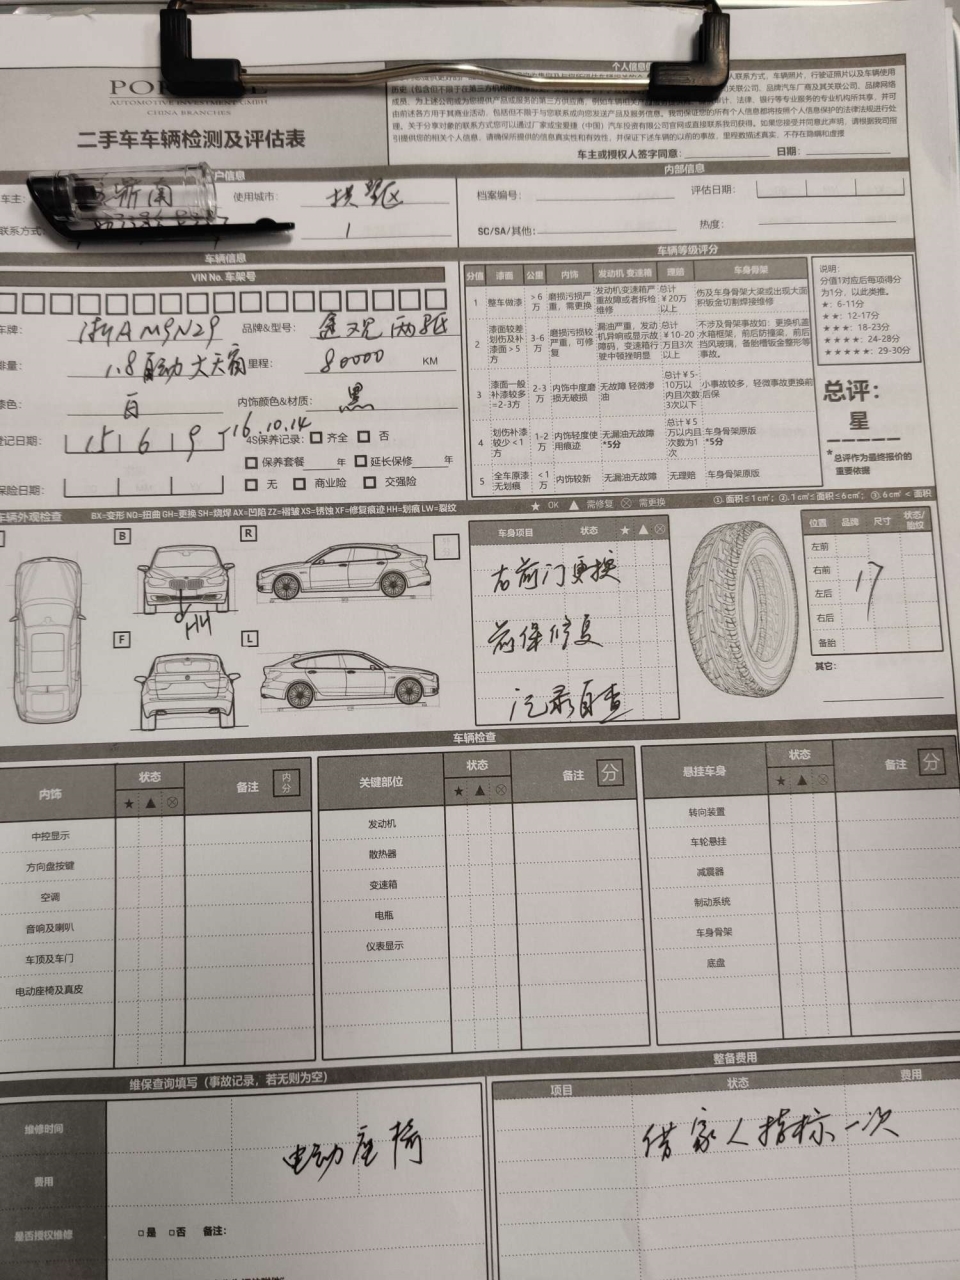 AUTOMOTIVE INVESTMENT GMBH
CHINA BRANCHES
二手车车辆检测及评估表
由前述各方用于其商业活动，包括但不限于与您联系或向您发送产品及服务信息。我司保证您的所有个人信息都将按照个人信息保护的法律法规进行处
理。关于分享对象的联系方式您可以通过厂家或
（中国）汽车投资有限公司官网或直接联系我司获得。如果您接受并同意此声明，请根据我司指
引提供您的相关个人信息，请确保所提供的信息真实性和有效性，并保证下述车辆的以前的故事，里程数描述真实，不存在隐瞒和虚擅
车主或授权人签字同意：
日期：
户信息
内部信息
车主：
使用城市：
拱墅区
档案编号：
评估日期：
联系方式：
SC/SA/其他：
热度：
车辆信息
车辆等级评分
VIN No. 车架号
车牌：
浙A M9N29
品牌&型号：
两驱
排量：
1.8自动大天窗
里程：
80000
KM
漆色：
白
内饰颜色&材质：
黑
登记日期：
15 6 9
16.10.14
4S保养记录：
齐全
否
保养套餐
年
延长保修
年
保险日期：
无
商业险
交强险
分值
漆面
公里
内饰
发动机 变速箱
理赔
车身骨架
1
整车做漆
>6万
磨损污损严重，需更换
发动机变速箱严重故障或者拆检维修
总计￥20万以上
伤及车身骨架大梁或出现大面积钣金切割焊接维修
2
漆面较差划伤及补漆面>5方
3-6万
磨损污损较严重，可修复
漏油严重，发动机异响或显示故障码，变速箱行驶中顿挫明显
总计￥10-20万且3次以上
不涉及骨架事故如：更换机盖水箱框架，前后防撞梁，前后挡风玻璃，备胎槽钣金整形等事故。
3
漆面一般补漆较多=2-3方
2-3万
内饰中度磨损无破损
无故障 轻微渗油
总计￥5-10万以内且次数3次以下
小事故较多，轻微事故更换前后保
4
划伤补漆较少<1方
1-2万
内饰轻度使用痕迹
无漏油无故障*5分
总计￥5万以内且次数为1次
车身骨架原版*5分
5
全车原漆无划痕
<1万
内饰较新
无漏油无故障
无理赔
车身骨架原版
说明：
分值1对应后每项得分为1分，以此类推。
★：6-11分
★★：12-17分
★★★：18-23分
★★★★：24-28分
★★★★★：29-30分
总评：
星
*总评作为最终报价的重要依据
车辆外观检查
BX=变形 NQ=扭曲 GH=更换 SH=烧焊 AX=凹陷 ZZ=褶皱 XS=锈蚀 XF=修复痕迹 HH=划痕 LW=裂纹
★ OK ▲ 需修复 ⊗ 需更换
①. 面积≤1cm²；②. 1cm²≤面积≤6cm²；③. 6cm²<面积
B
R
F
L
HH
车身项目
状态
★ ▲ ⊗
右前门更换
前保修复
记录自查
位置
品牌
尺寸
状态/胎纹
左前
右前
左后
右后
备胎
17
其它：
车辆检查
内饰
状态
★ ▲ ⊗
备注
内分
中控显示
方向盘按键
空调
音响及喇叭
车顶及车门
电动座椅及真皮
关键部位
状态
★ ▲ ⊗
备注
分
发动机
散热器
变速箱
电瓶
仪表显示
悬挂车身
状态
★ ▲ ⊗
备注
分
转向装置
车轮悬挂
减震器
制动系统
车身骨架
底盘
维保查询填写（事故记录，若无则为空）
整备费用
项目
状态
费用
维修时间
费用
是否授权维修
电动座椅
借家人指标一次
是
否
备注：